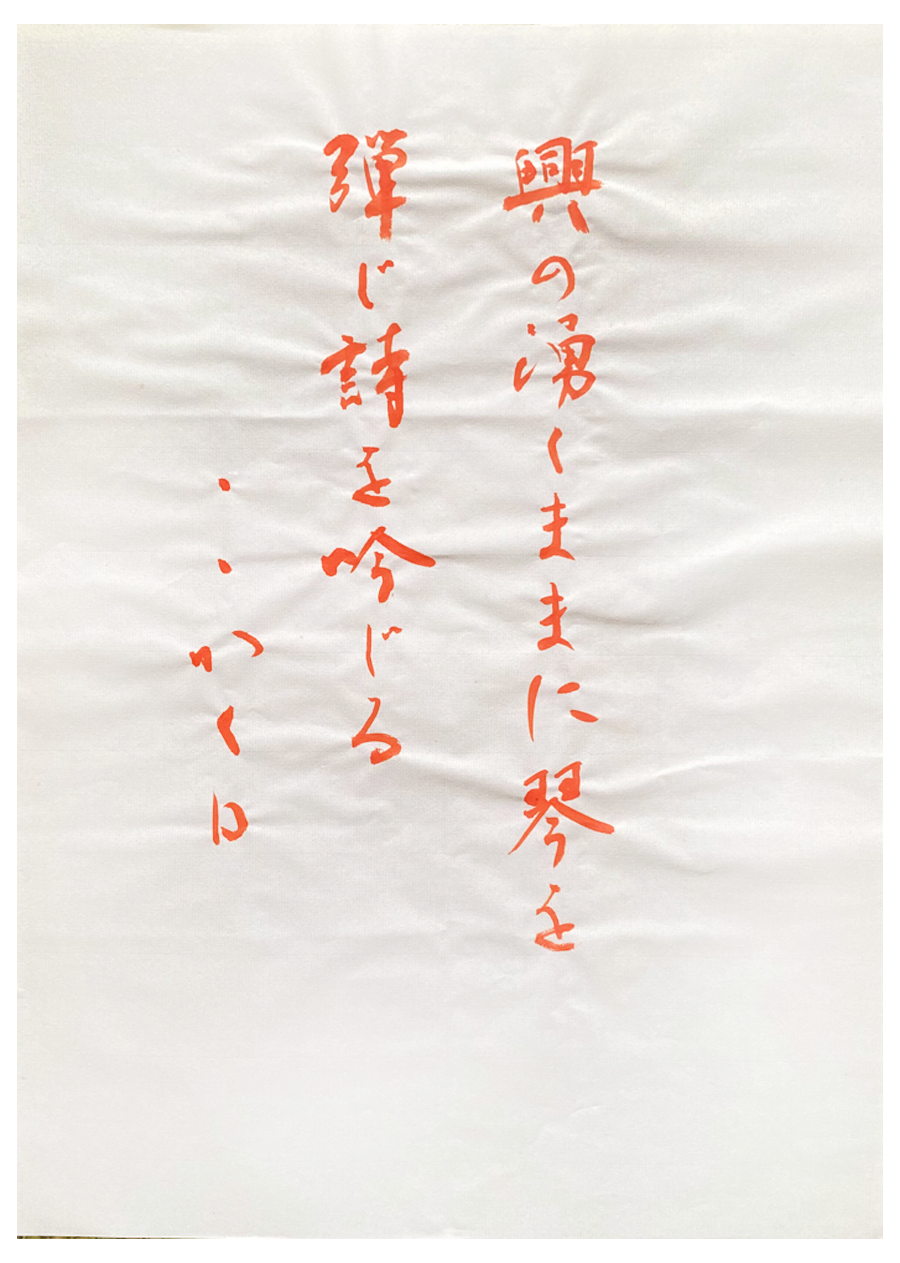 興の湧くままに琴を
弾じ詩を吟じる
・・かく日